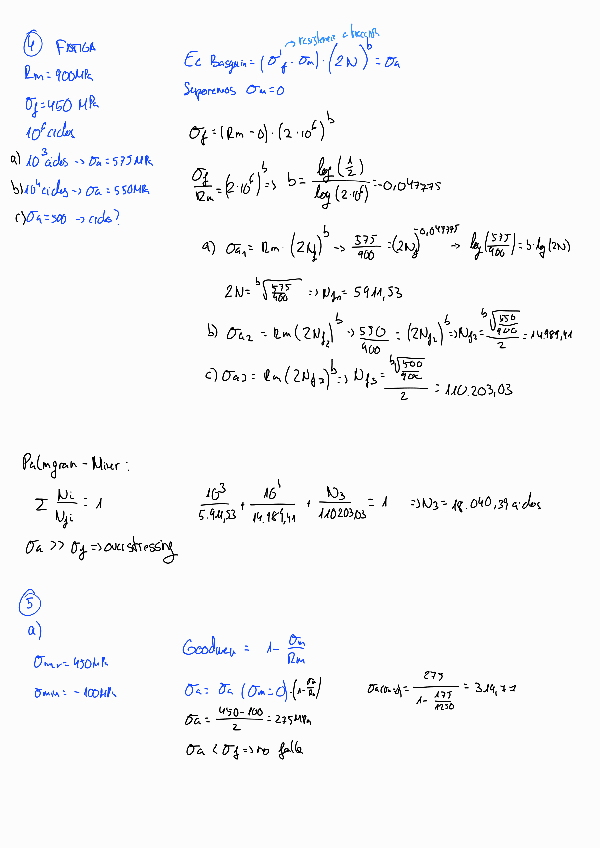 4 FATIGA
Rm = 900MPa
σf = 450 MPa
10⁶ ciclos
a) 10³ ciclos → σa = 575MPa
b) 10⁴ ciclos → σa = 550MPa
c) σa = 500 → ciclos?
→ resistencia a tracción
Ec Basquin = (σ'f - σm) · (2N)^b = σa
Suponemos σm = 0
σf = (Rm - 0) · (2·10⁶)^b
σf/Rm = (2·10⁶)^b => b = log(1/2)/log(2·10⁶) = -0,047775
a) σa1 = Rm · (2Nf)^b → 575/900 = (2Nf)^-0,047775 → log(575/900) = b·log(2N)
2N = ᵇ√(575/900) => Nf1 = 5911,53
b) σa2 = Rm (2Nf2)^b → 550/900 = (2Nf2)^b => Nf2 = ᵇ√(550/900)/2 = 14.989,41
c) σa3 = Rm (2Nf3)^b => Nf3 = ᵇ√(500/900)/2 = 110.203,03
Palmgran - Miner:
Σ Ni/Nfi = 1
10³/5.911,53 + 10⁴/14.989,41 + N3/110203,03 = 1 => N3 = 18.040,39 ciclos
σa >> σf => overstressing
5
a)
σmax = 450MPa
σmin = -100MPa
Goodman = 1 - σm/Rm
σa = σa (σm=0) · (1 - σm/Rm)
σa = 450--100/2 = 275MPa
σa < σf => no falla
σa(σm=0) = 275/(1 - 175/1250) = 319,77